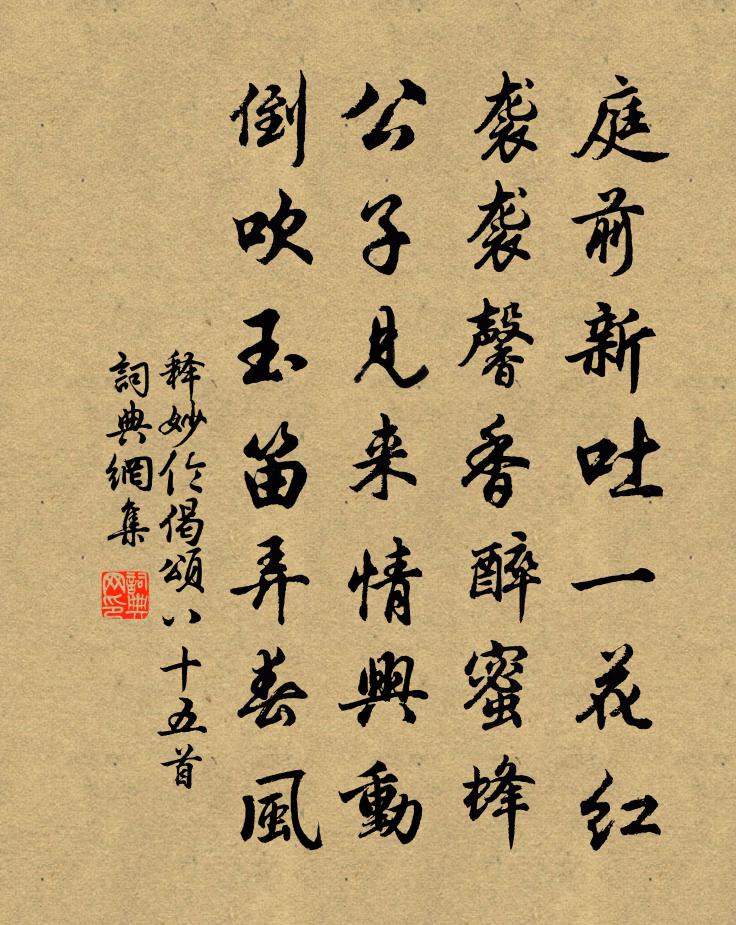 庭前新吐一花红
袭袭馨香醉蜜蜂
公子见来情興動
倒吹玉笛弄春風
释妙伦偈頌八十五首
詞典網集
詞典网印